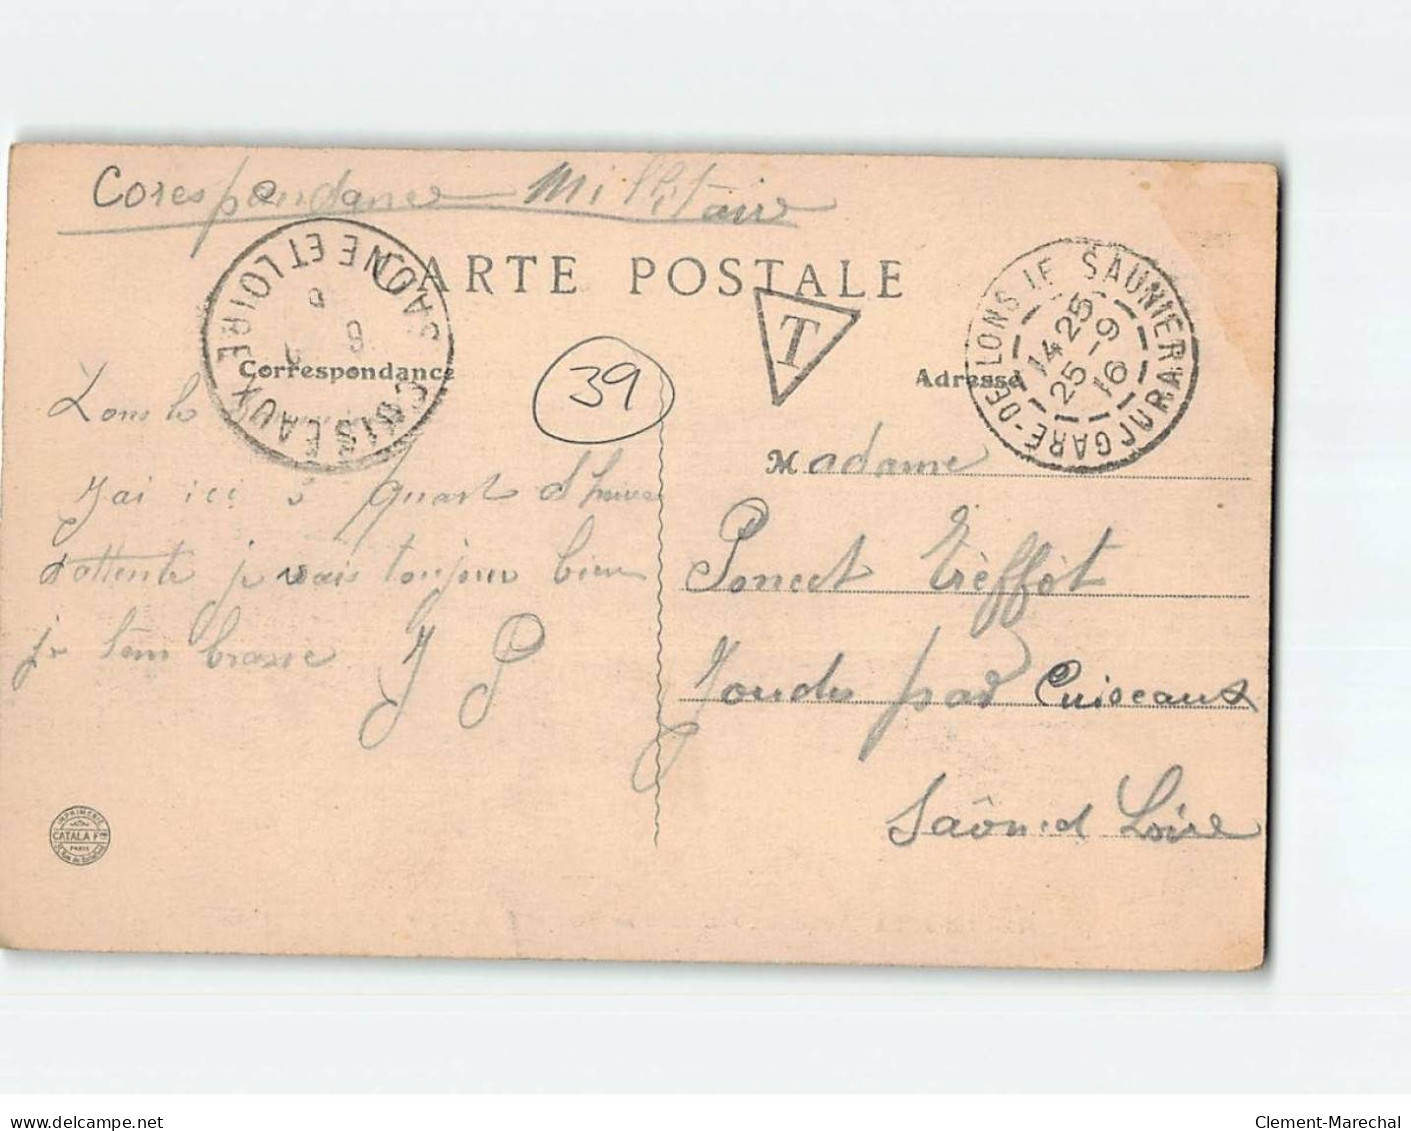 Corespondance Militair
CARTE POSTALE
SAONE ET LOIRE
CUISEAUX
T
GARE-DE LONS LE SAUNIER
JURA
14 25
25-9
16
39
Correspondance
Adresse
Lons le
J'ai ici 3 quart d'heure
d'attente je vais toujour bien
je t'em brasse J P
Madame
Poncet Trèffôt
Joudes par Cuiseaux
Saône et Loire
IMPRIMERIE
CATALA Fres
PARIS
Clement-Marechal